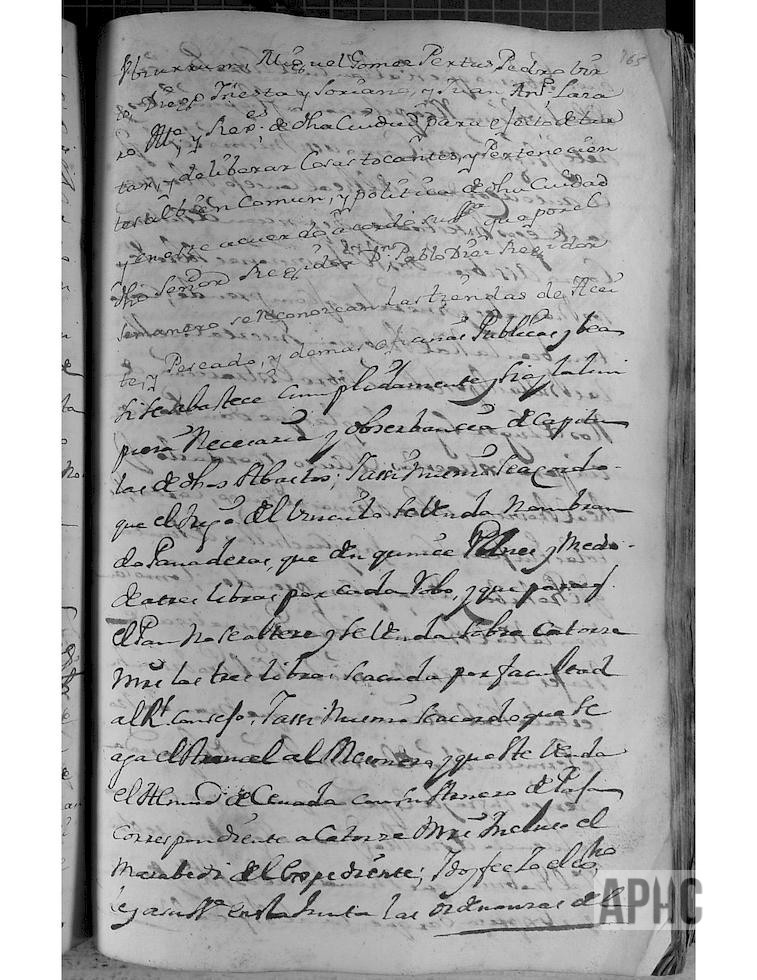 165
Miguel Gomez Pertus Pedro
Diego Yniesta y Soriano, y Juan Ant.º Lara
y Rex.s de dha Ciudad para efecto de tra
tar, y deliberar Cosas tocantes, y Pertenecien
tes al bien Comun, y politica de dha Ciudad
y en este acuerdo acordo su que por el
dho Señor Regidor D.n Pablo Diaz Regidor
semanero se reconozcan las tiendas de Acei
te, y Pescado, y demas oficinas Publicas y vean
si se abastece Cumplidamente y Con la lim
pieza Necesaria y observancia de Capitu
las de dhos Abastos; Y assi mismo se acordo
que el trigo del se Venda Nombran
do Panaderas, que den quince Panes y Medio
de a tres libras por cada Robo, y que para q.
el Pan No se altere y se Venda Sobre Catorze
mrs las tres libras se acuda por facultad
al R.l Consejo; Y assi mismo se acordo que se
aga el Aranzel al Mesonero, y que este Venda
el Almud de Cevada con su Arnero de Paja
Correspondiente a Catorze Mrs Incluso el
Marabedi del Expediente;
en esta Junta las ordenanzas del
APHC